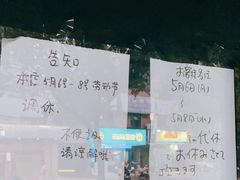 告知
本店5月6号-8号劳动节
调休.
不便之处
请谅解啦
お客様各位
5月6日(月)
〜
5月8日(水)
代休
お休みさせて